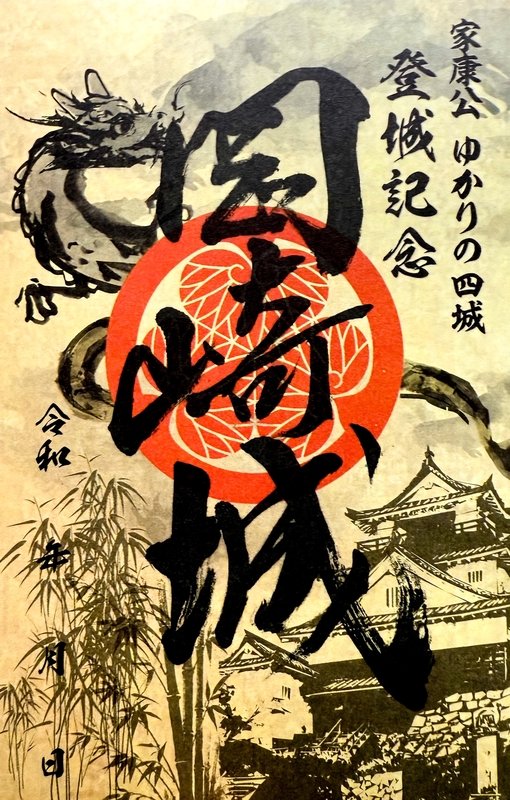 家康公 ゆかりの四城
登城記念
岡崎城
令和 年 月 日